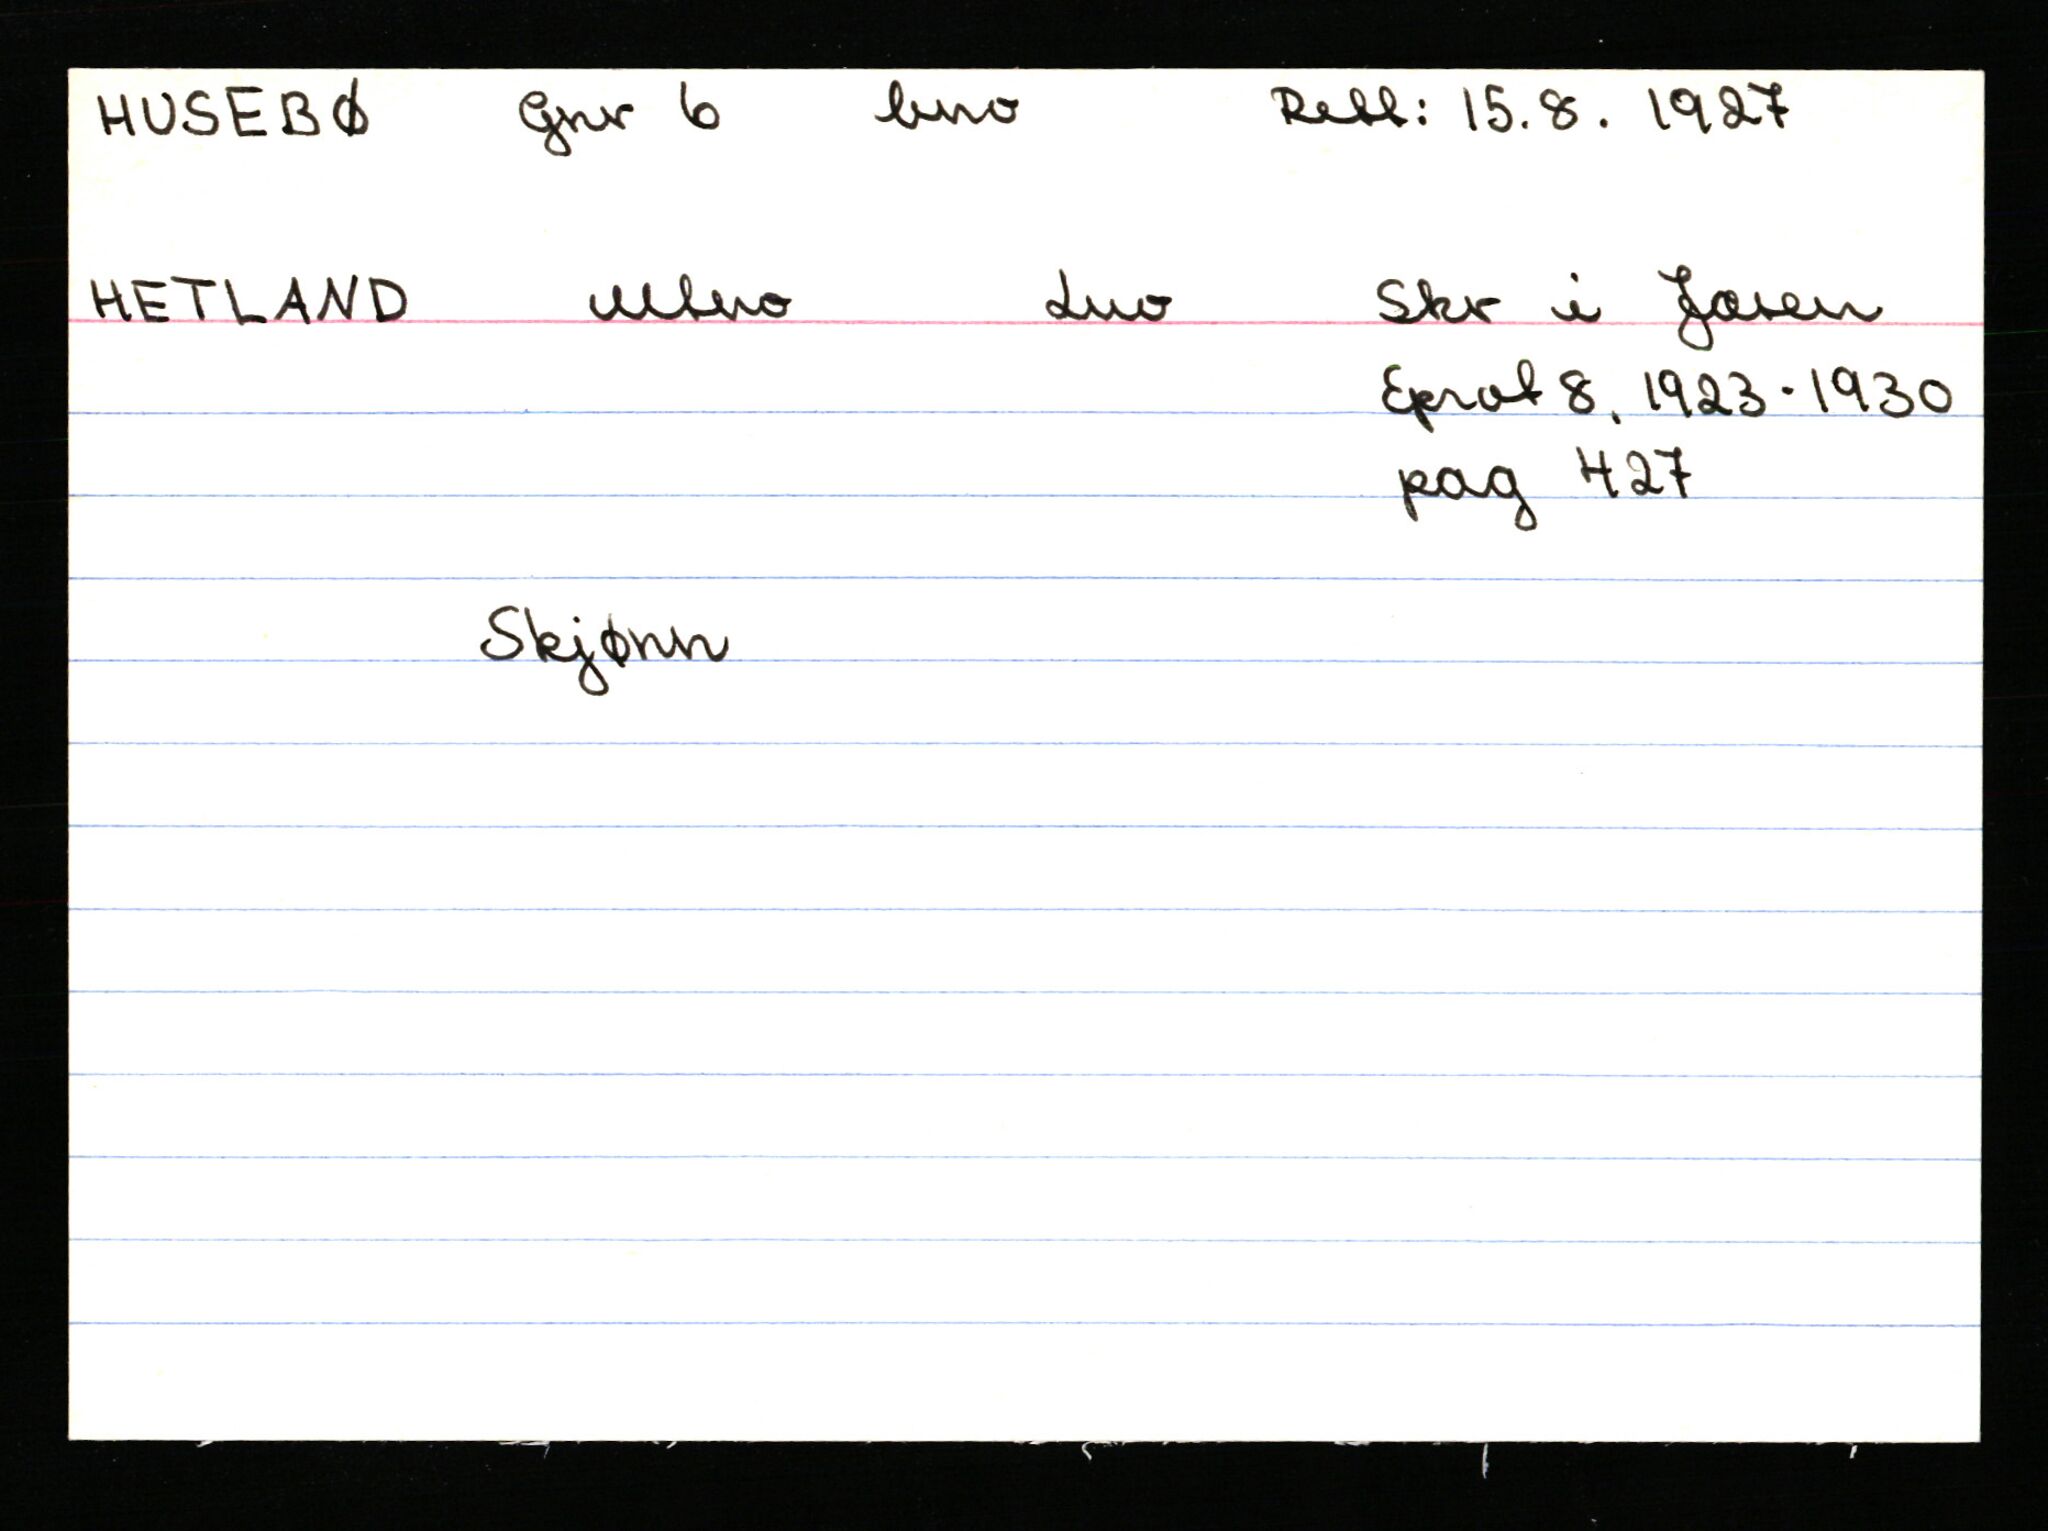 HUSEBØ Gnr 6 bno Rett: 15.8. 1927
HETLAND Mbno Lno Skr i Jæren
Eprot 8, 1923-1930
pag 427
Skjønn